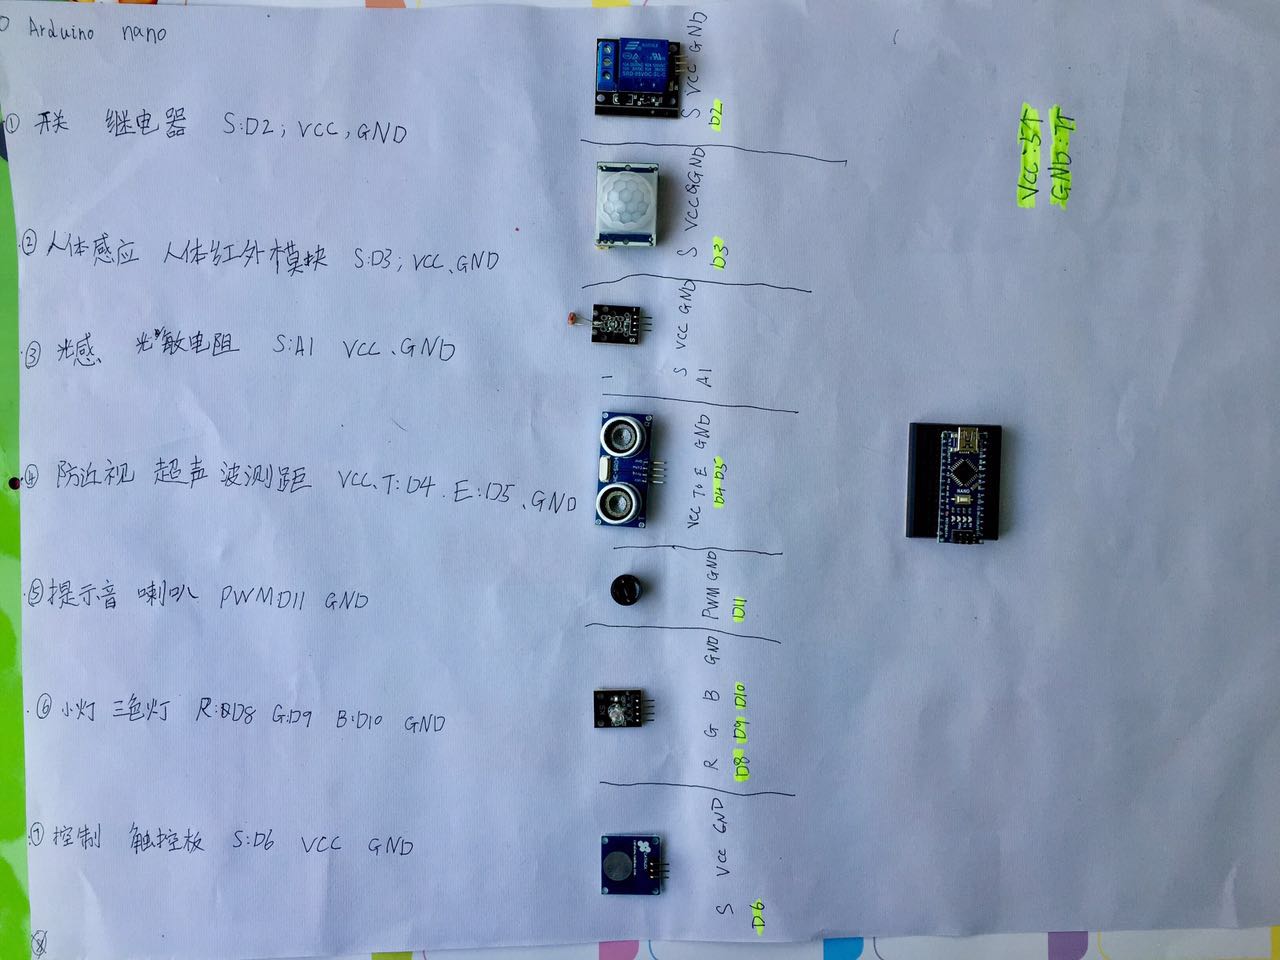 Arduino nano
① 开关 继电器 S:D2; VCC, GND
② 人体感应 人体红外模块 S:D3; VCC、GND
③ 光感 光敏电阻 S:A1 VCC、GND
④ 防近视 超声波测距 VCC、T:D4. E:D5、GND
⑤ 提示音 喇叭 PWMD11 GND
⑥ 小灯 三色灯 R:D8 G:D9 B:D10 GND
⑦ 控制 触控板 S:D6 VCC GND
S VCC GND
D2
S VCC GND
D3
S VCC GND
A1
VCC T E GND
D4 D5
PWM GND
D11
R G B GND
D8 D9 D10
S VCC GND
D6
VCC:5个
GND:7个
NANO